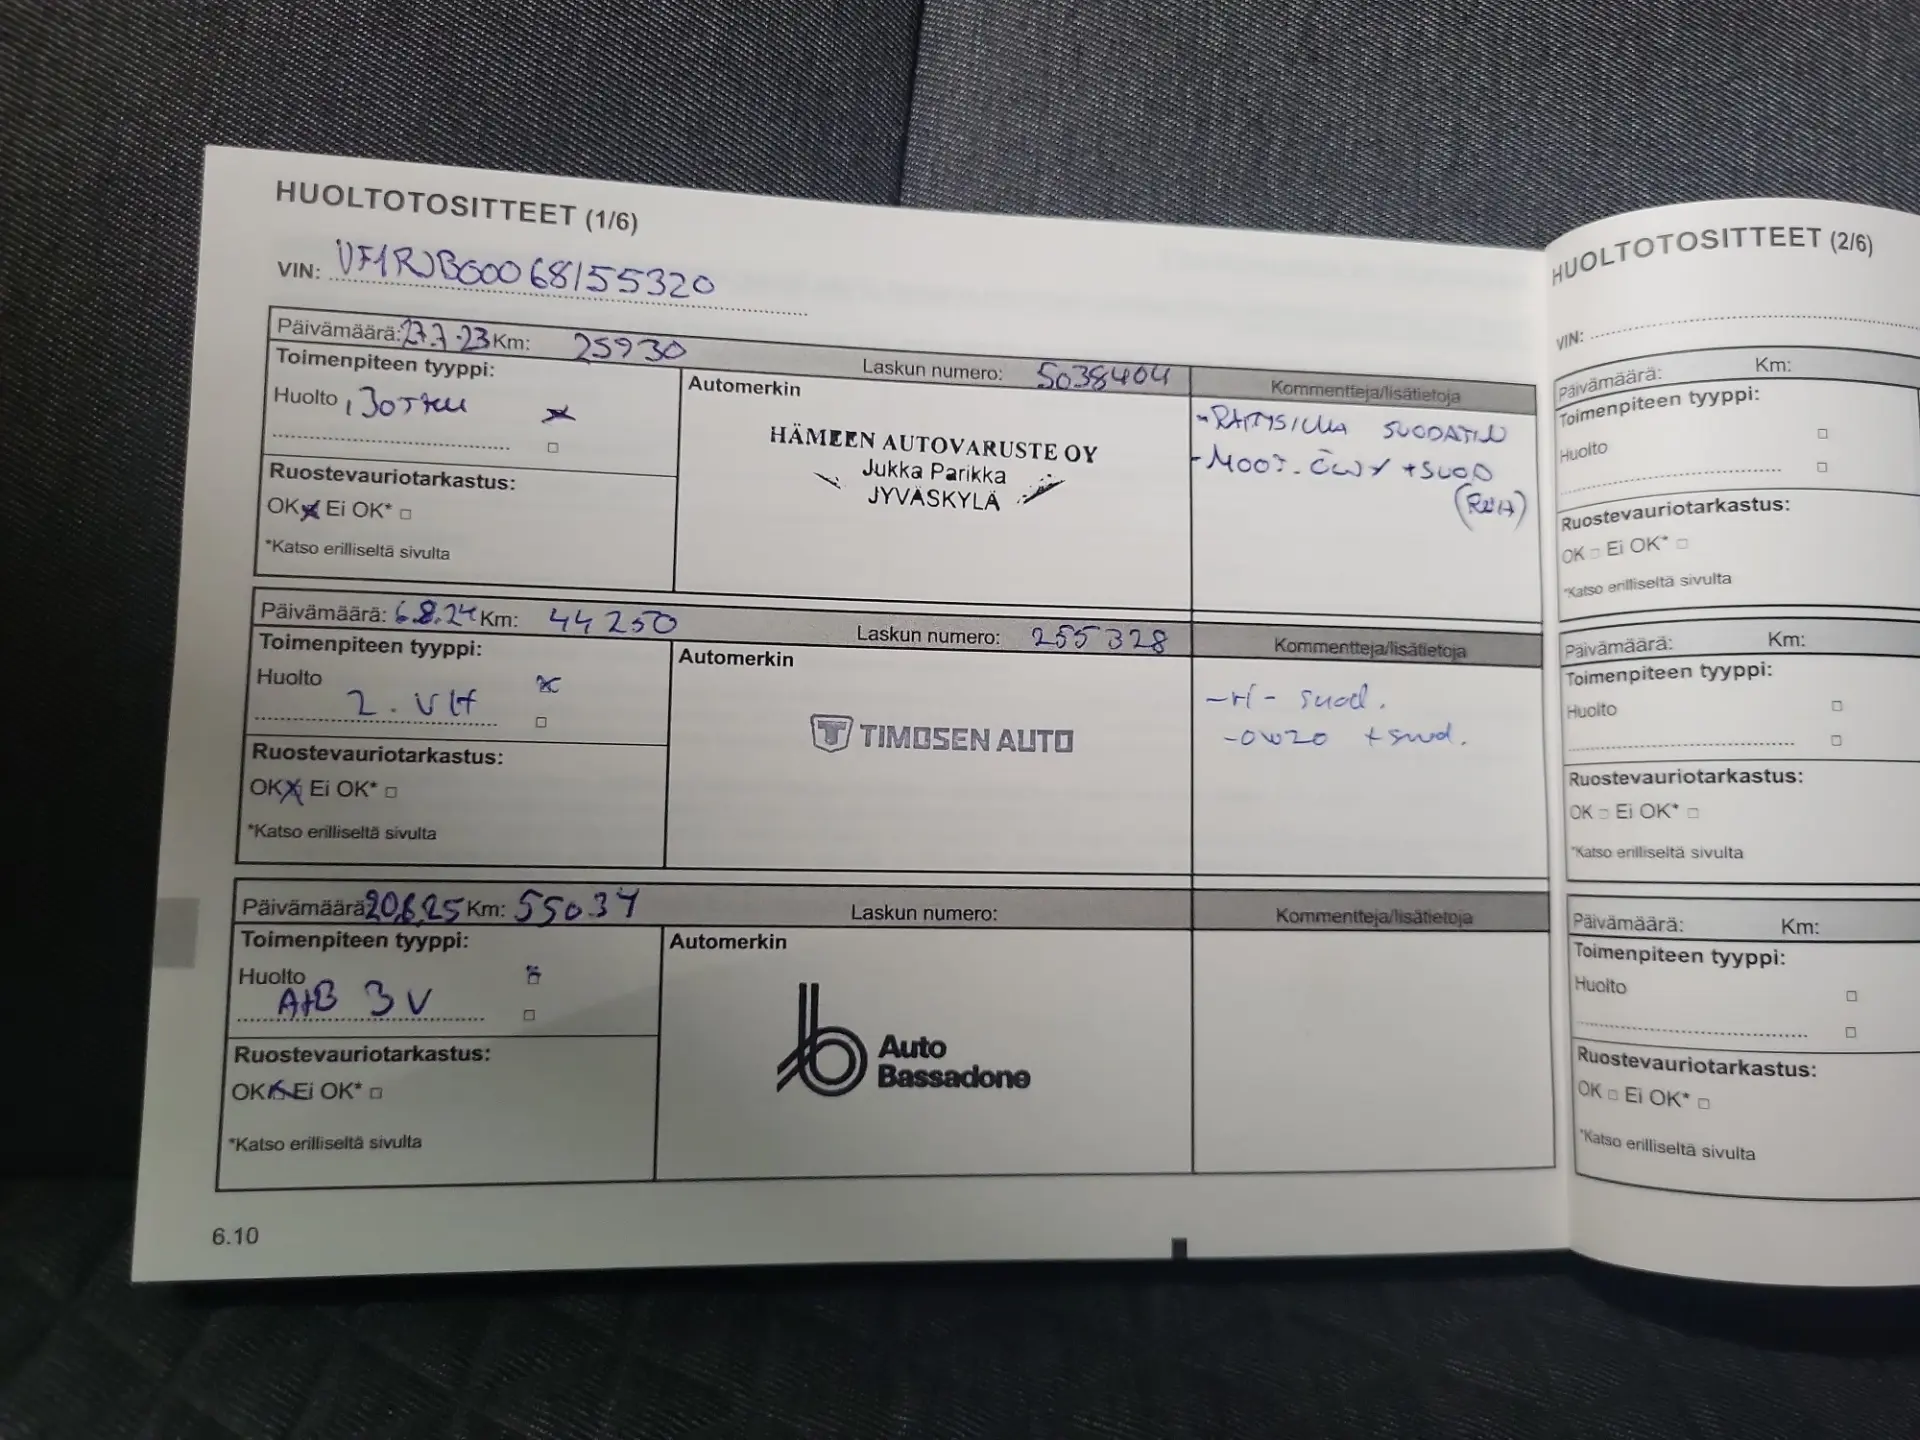 HUOLTOTOSITTEET (1/6)
VIN: VF1RJB00068155320
Päivämäärä: 27.7.23 Km: 25930 Laskun numero: 5038404 Kommentteja/lisätietoja
Toimenpiteen tyyppi:
Huolto
Ruostevauriotarkastus:
OK Ei OK*
*Katso erilliseltä sivulta
Automerkin
HÄMEEN AUTOVARUSTE OY
Jukka Parikka
JYVÄSKYLÄ
SUODATIN
+SUOD
Päivämäärä: 6.8.24 Km: 44250 Laskun numero: 255328 Kommentteja/lisätietoja
Toimenpiteen tyyppi:
Huolto
2. VH
Ruostevauriotarkastus:
OK Ei OK*
*Katso erilliseltä sivulta
Automerkin
TIMOSEN AUTO
suod.
-0w20 +suod.
Päivämäärä: 20.6.25 Km: 55034 Laskun numero: Kommentteja/lisätietoja
Toimenpiteen tyyppi:
Huolto
A+B 3V
Ruostevauriotarkastus:
OK Ei OK*
*Katso erilliseltä sivulta
Automerkin
Auto
Bassadone
6.10
HUOLTOTOSITTEET (2/6)
VIN:
Päivämäärä: Km:
Toimenpiteen tyyppi:
Huolto
Ruostevauriotarkastus:
OK Ei OK*
*Katso erilliseltä sivulta
Päivämäärä: Km:
Toimenpiteen tyyppi:
Huolto
Ruostevauriotarkastus:
OK Ei OK*
*Katso erilliseltä sivulta
Päivämäärä: Km:
Toimenpiteen tyyppi:
Huolto
Ruostevauriotarkastus:
OK Ei OK*
*Katso erilliseltä sivulta